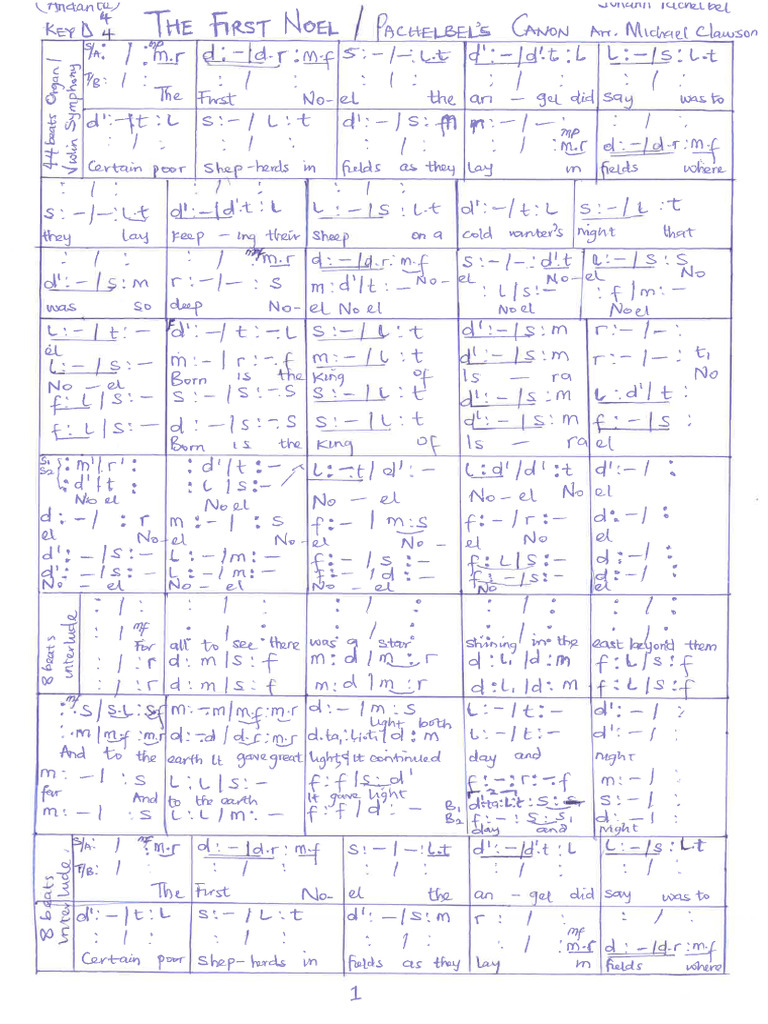 (Andante)
KEY D 4/4 THE FIRST NOEL / PACHELBEL'S CANON Arr. Michael Clawson
44 beats Organ / Violin Symphony
S/A: / : mp m.r | d : – / d.r : m.f | s : – / – : l.t | d' : – / d'.t : l | l : – / s : l.t
T/B: / : | : / : | : / : | : / : | : / :
The | First No- | el the | an – gel did | say was to
d' : – / t : l | s : – / l : t | d' : – / s : m | r : – / – : | : / :
: / : | : / : | : / : | : / : mp m.r | d : – / d.r : m.f
Certain poor | Shep-herds in | fields as they | lay in | fields where
: / : | : / : | : / : | : / : | : / :
s : – / – : l.t | d' : – / d'.t : l | l : – / s : l.t | d' : – / t : l | s : – / l : t
they lay | keep – ing their | sheep on a | cold wanter's | night that
: / : | : / : mf m.r | d : – / d.r : m.f | s : – / – : d'.t | l : – / s : s
No – | el No – | el No
d' : – / s : m | r : – / – : s | m : d' / t : – | : l / s : – | : f / m : –
was so | deep No – | el No el | No el | No el
l : – / t : – | d' : – / t : – l | s : – / l : t | d' : – / s : m | r : – / – :
el
l : – / s : – | m : – / r : – f | m : – / l : t | d' : – / s : m | r : – / – : t₁
No – el | Born is the | King of | Is – ra | No
f : l / s : – | s : – / s : – s | s : – / l : t | d' : – / s : m | l : d' / t :
f : l / s : – | d : – / s : – s | s : – / l : t | d' : – / s : m | f : – / s :
Born is the | King of | Is – ra | el
S1 : m' / r' : | : d' / t : – | l : – t / d' : – | l : d' / d' : t | d' : – / :
S2 : d' / t : | : l / s : –
No el | No el | No – el | No – el No | el
d : – / : r | m : – / : s | f : – / m : s | f : – / r : – | d : – / :
el No – | el No – | el No – | el No | el
d' : – / s : – | l : – / m : – | f : – / s : – | f : l / s : – | d : – / :
d' : – / s : – | l : – / m : – | f : – / d : – | f : – / s : – | d : – / :
No – el | No – el | No – el | No | el
8 beats interlude
: / : | : / : | : / : | : / : | : / :
: / mf : | : / : | : / : | : / : | : / :
For | all to see there | was a star | shining in the | east beyond them
: / : r | d : m / s : f | m : d / m : r | d : l₁ / d : m | f : l / s : f
: / : r | d : m / s : f | m : d / m : r | d : l₁ / d : m | f : l / s : f
mf : . s / s.l : s.f | m : – . m / m.f : m.r | d : – / m : s | l : – / t : – | d' : – / :
light both
: . m / m.f : m.r | d : – . d / d.r : m.r | d.ta₁ : l₁.t₁ / d : m | l : – / t : – | d' : – / :
And to the | earth it gave great | light, & it continued | day and | night
m : – / : s | l : l / s : – | f : f / s : d' | f : – : r : – f | m : – /
far And | to the earth | It gave light
m : – / : s | l : l / m : – | f : f / d : – | B₁ d'.ta : l.t : s : s | s : – / :
B₂ f : – : s : s₁ | d : – / :
day and | night
8 beats interlude.
S/A: / : mf m.r | d : – / d.r : m.f | s : – / – : l.t | d' : – / d'.t : l | l : – / s : l.t
T/B: / : | : / : | : / : | : / : | : / :
The | First No- | el the | an – gel did | say was to
d' : – / t : l | s : – / l : t | d' : – / s : m | r : / : | : / :
: / : | : / : | : / : | : / : mf m.r | d : – / d.r : m.f
Certain poor | Shep-herds in | fields as they | lay in | fields where
1